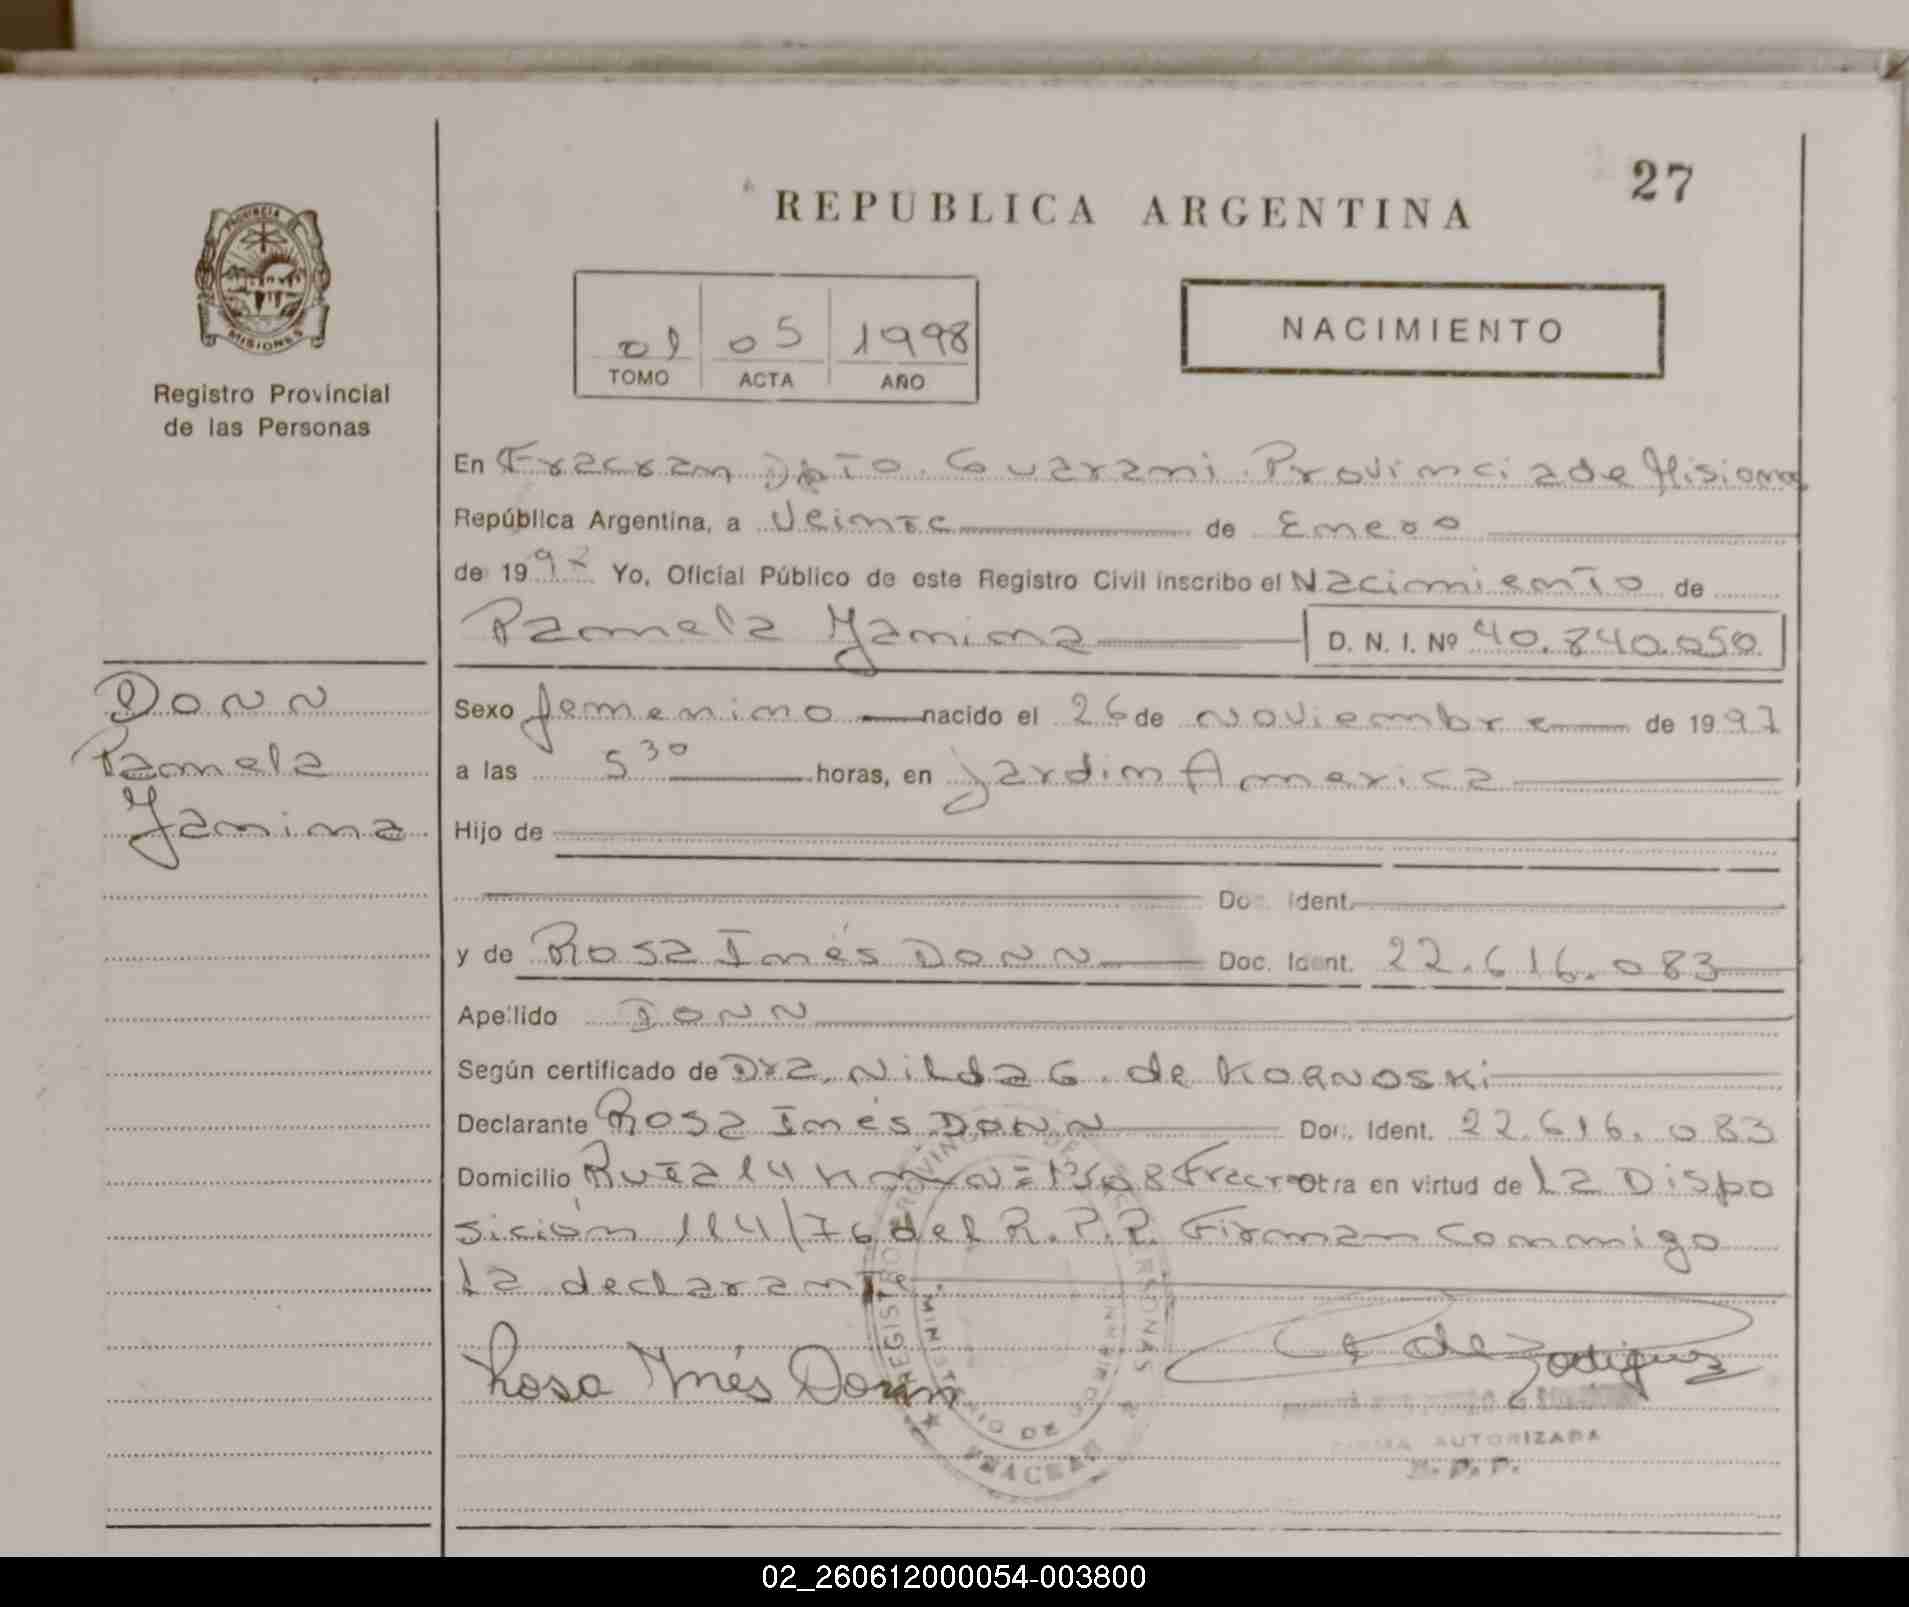 27
REPUBLICA ARGENTINA
PROVINCIA DE
MISIONES
Registro Provincial
de las Personas
01 05 1998
TOMO ACTA AÑO
NACIMIENTO
En Fracran Dpto. Guarani Provincia de Misiones
República Argentina, a Veinte de Enero
de 19 Yo, Oficial Público de este Registro Civil inscribo el Nacimiento de
Pamela Yanina D. N. I. Nº 40.840.050
Donn
Pamela
Yanina
Sexo femenino nacido el 26 de Noviembre de 1997
a las 5 30 horas, en Jardin America
Hijo de
Doc. Ident.
y de Rosa Inés Donn Doc. Ident. 22.616.083
Apellido Donn
Según certificado de Dra. Nilda G. de Kornoski
Declarante Rosa Inés Donn Doc. Ident. 22.616.083
Domicilio Ruta 14 Km Otra en virtud de la Dispo
sición 114/76 del R.P.P. Firman Conmigo
la declarante.
Rosa Inés Donn
de Rodriguez
FIRMA AUTORIZADA
R. P. P.
REGISTRO PROVINCIAL DE LAS PERSONAS
MINISTERIO DE GOBIERNO
FRACRAN
02_260612000054-003800